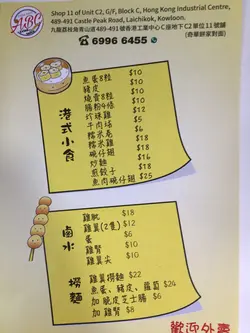 ABC
Shop 11 of Unit C2, G/F, Block C, Hong Kong Industrial Centre,
489-491 Castle Peak Road, Laichikok, Kowloon.
九龍荔枝角青山道489-491號香港工業中心C座地下C2單位11號舖
(奇華餅家對面)
6996 6455
港式小食
魚蛋8粒 $10
豬皮 $10
燒賣8粒 $10
腸粉4條 $10
炸味雞 $12
牛肉球
糯米卷 $6
糯米雞
碗仔翅 $10
炒麵 $16
煎餃子 $10
魚肉碗仔翅 $25
鹵水
雞肶 $18
雞翼(2隻) $12
蛋 $6
雞腎 $10
雞翼尖 $10
撈麵
雞翼撈麵 $22
魚蛋、豬皮、蘿蔔 $24
加脆皮芝士腸 $6
加雞腎 $8
歡迎外賣